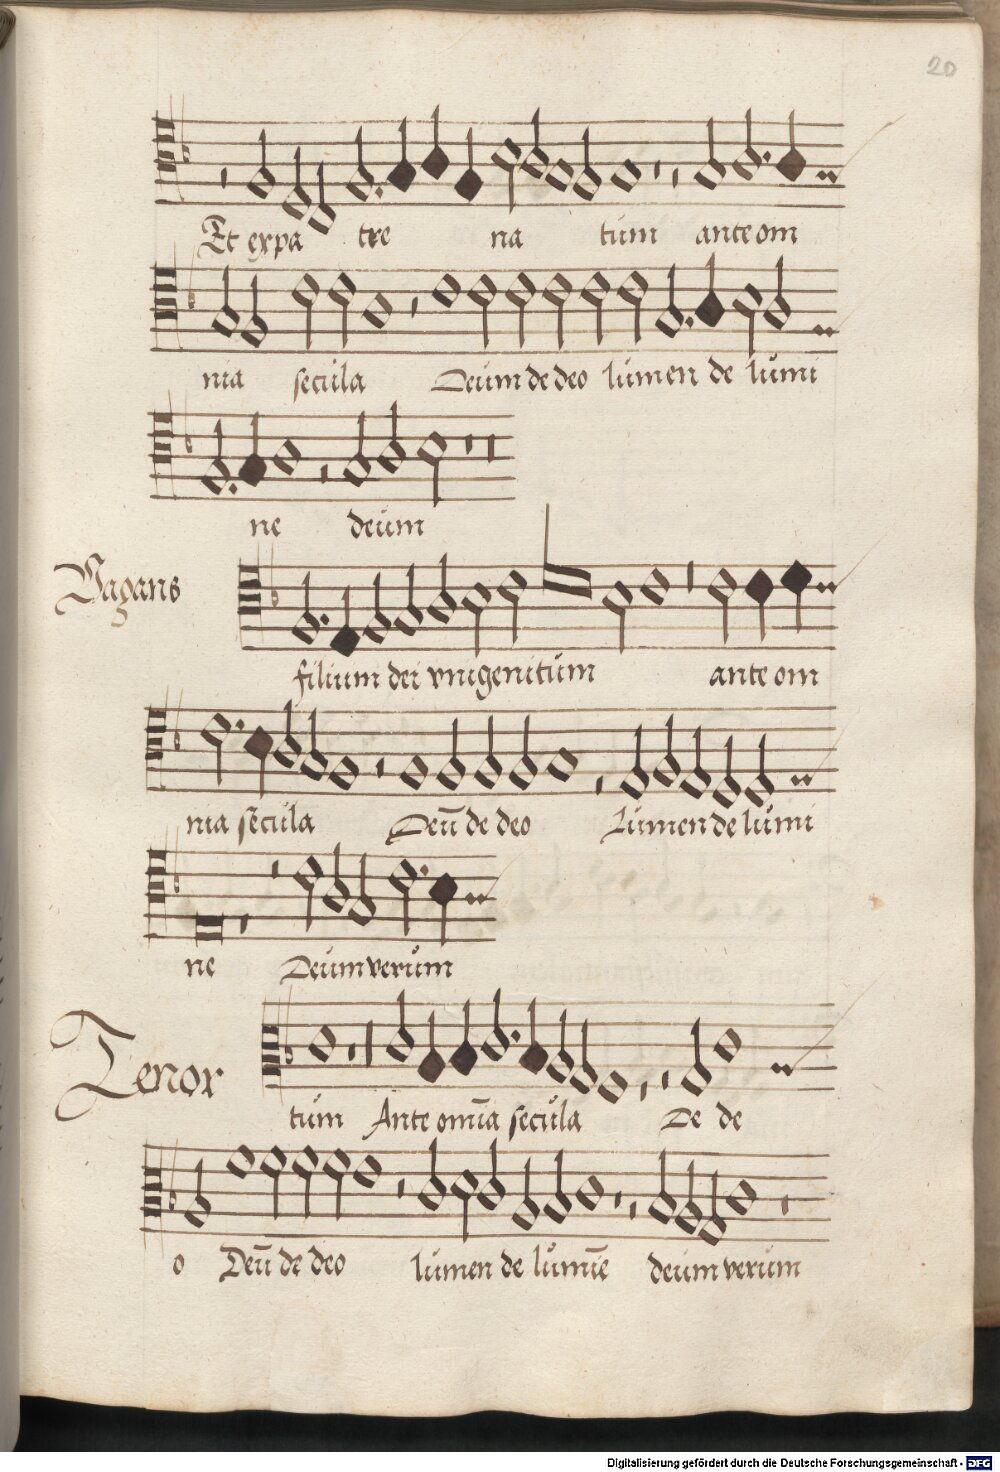 20
Et expa tre na tum ante om
nia secula Deum de deo lumen de lumi
ne deum
Vagans
filium dei vnigenitum ante om
nia secula Deū de deo Lumen de lumi
ne Deum verum
Tenor
tum Ante omīa secula De de
o Deū de deo lumen de lumīe deum verum
Digitalisierung gefördert durch die Deutsche Forschungsgemeinschaft - DFG